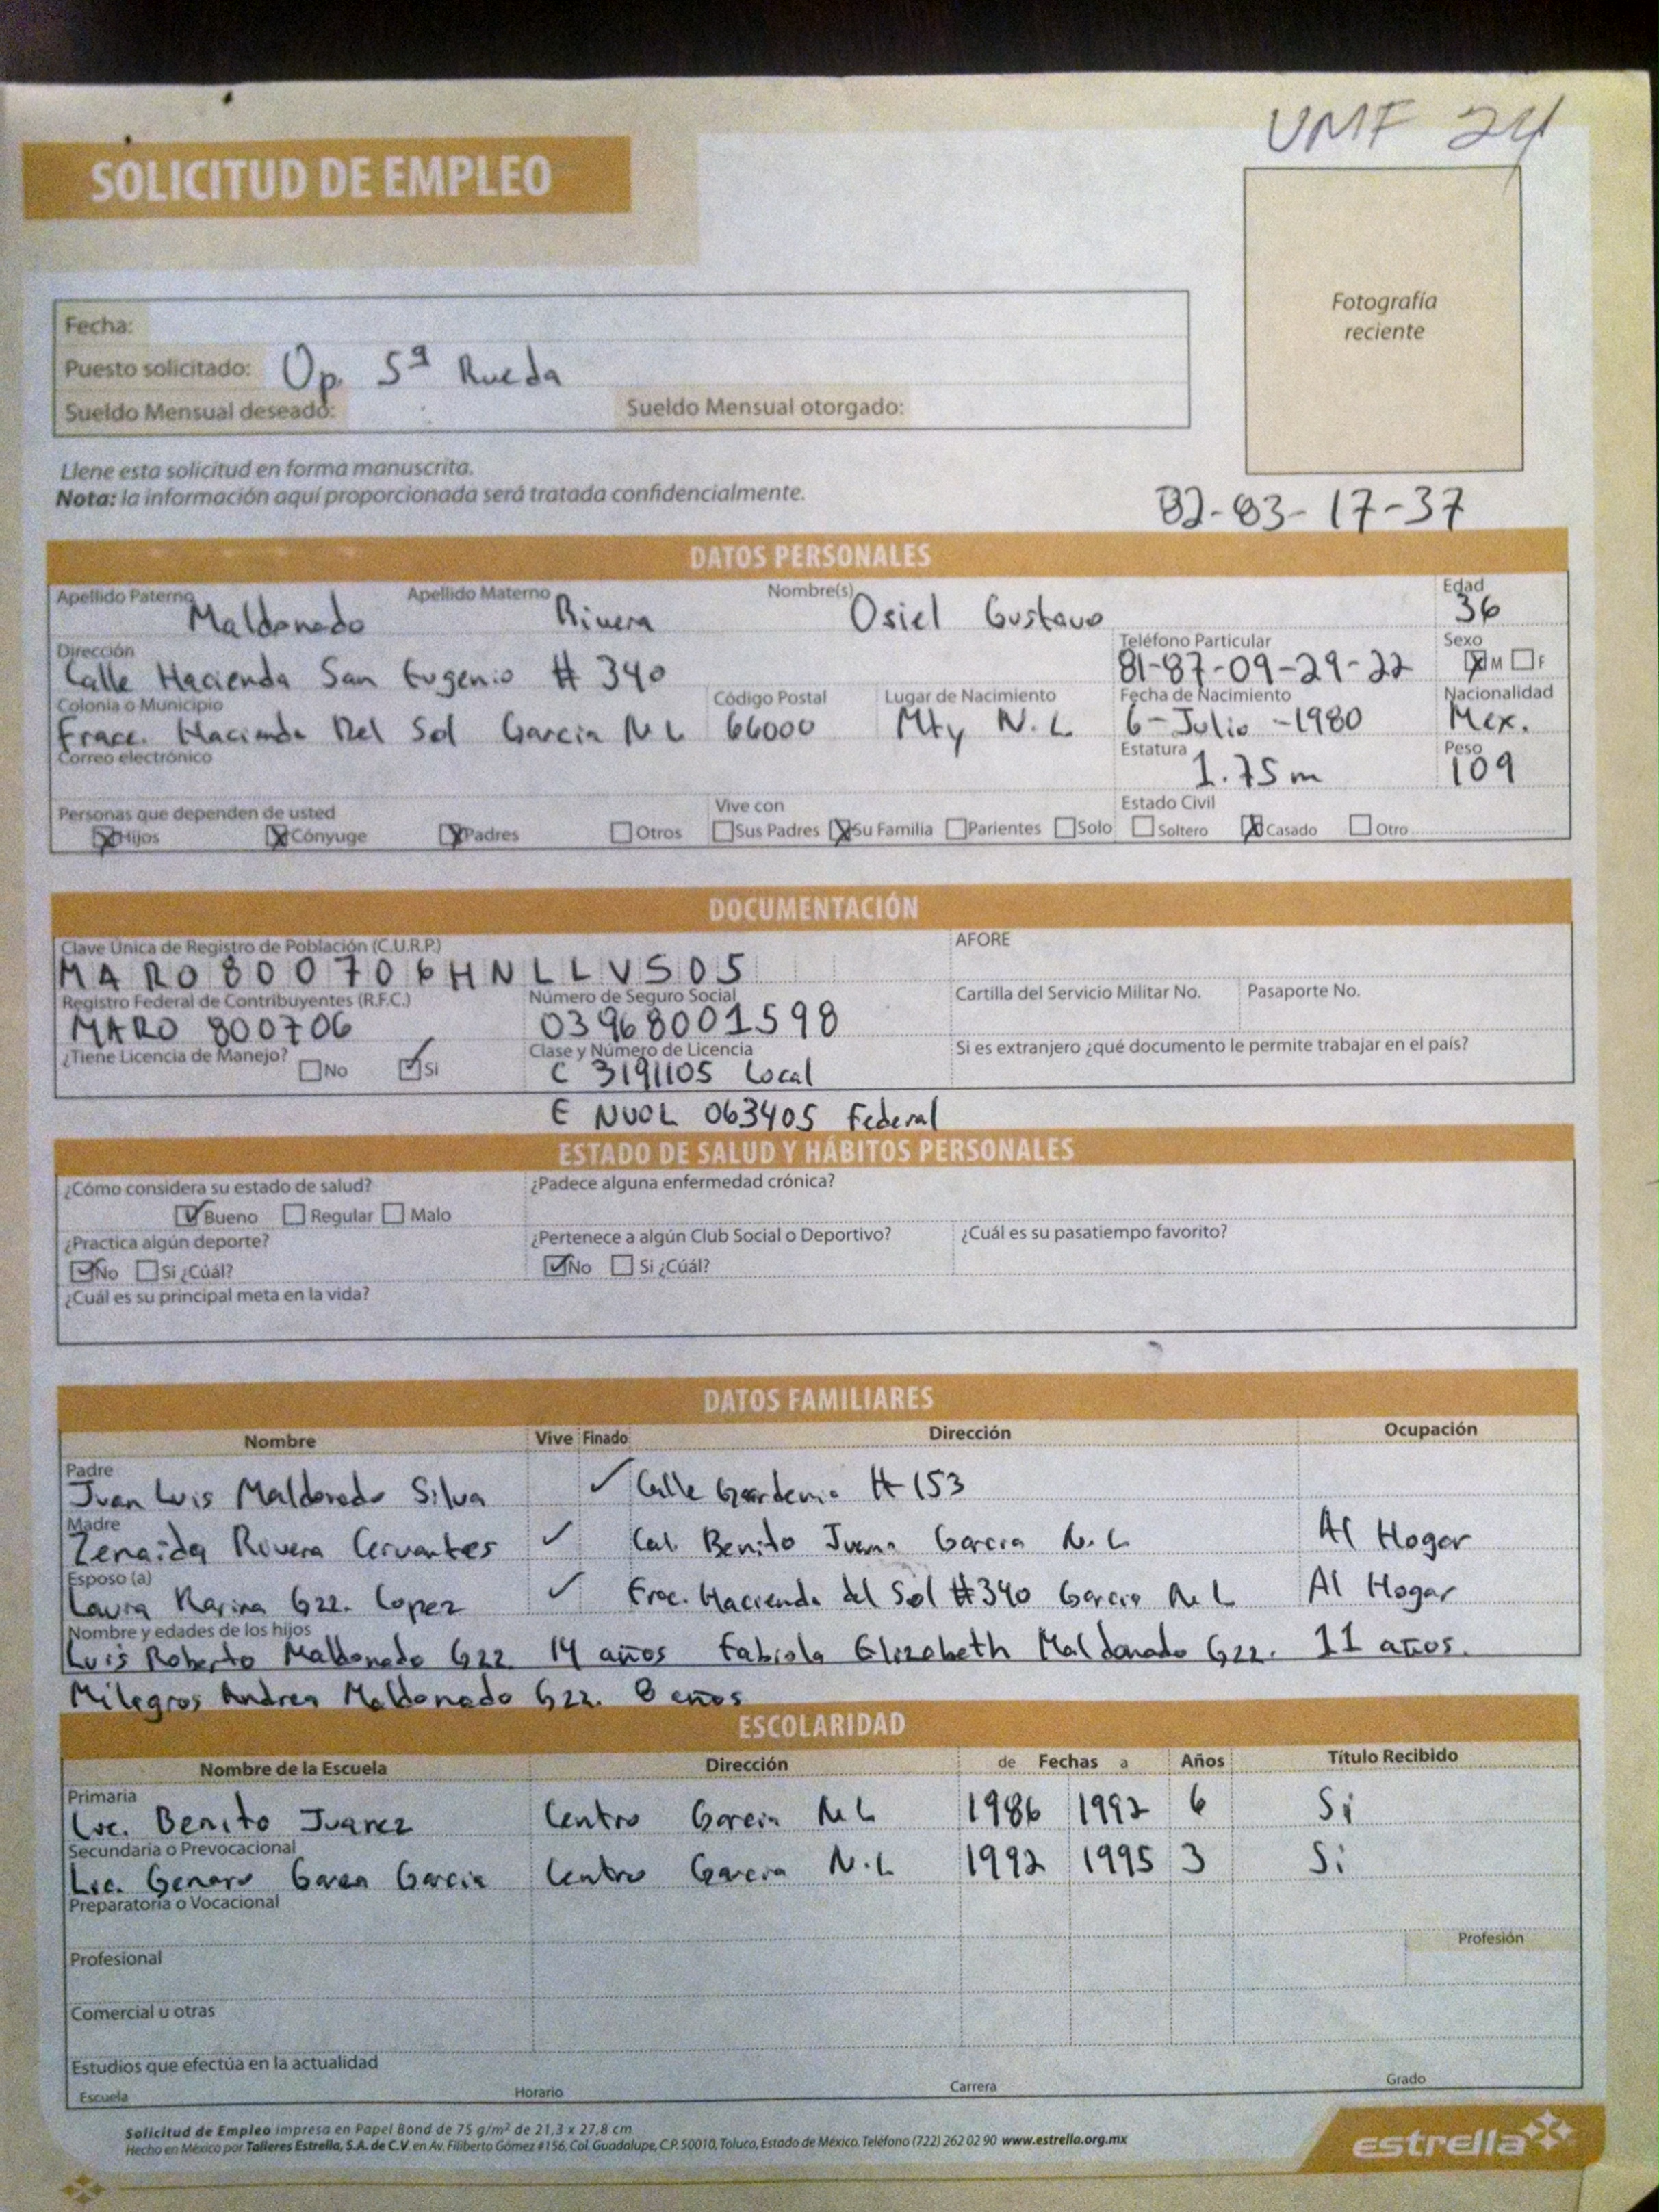 UMF 24
SOLICITUD DE EMPLEO
Fotografía
reciente
Fecha:
Puesto solicitado: Op. 5ª Rueda
Sueldo Mensual deseado: Sueldo Mensual otorgado:
Llene esta solicitud en forma manuscrita.
Nota: la información aquí proporcionada será tratada confidencialmente.
82-83-17-37
DATOS PERSONALES
Apellido Paterno Apellido Materno Nombre(s) Edad
Maldonado Rivera Osiel Gustavo 36
Dirección Teléfono Particular Sexo
Calle Hacienda San Eugenio # 340 81-87-09-29-22 M F
Colonia o Municipio Código Postal Lugar de Nacimiento Fecha de Nacimiento Nacionalidad
Fracc. Hacienda Del Sol Garcia N L 66000 Mty N.L 6-Julio-1980 Mex.
Correo electrónico Estatura Peso
1.75m 109
Personas que dependen de usted Vive con Estado Civil
Hijos Cónyuge Padres Otros Sus Padres Su Familia Parientes Solo Soltero Casado Otro
DOCUMENTACIÓN
Clave Única de Registro de Población (C.U.R.P.) AFORE
MARO800706HNLLVS05
Registro Federal de Contribuyentes (R.F.C.) Número de Seguro Social Cartilla del Servicio Militar No. Pasaporte No.
MARO 800706 03968001598
¿Tiene Licencia de Manejo? Clase y Número de Licencia Si es extranjero ¿qué documento le permite trabajar en el país?
No Si C 3191105 Local
E NUOL 063405 Federal
ESTADO DE SALUD Y HÁBITOS PERSONALES
¿Cómo considera su estado de salud? ¿Padece alguna enfermedad crónica?
Bueno Regular Malo
¿Practica algún deporte? ¿Pertenece a algún Club Social o Deportivo? ¿Cuál es su pasatiempo favorito?
No Si ¿Cúál? No Si ¿Cúál?
¿Cuál es su principal meta en la vida?
DATOS FAMILIARES
Nombre Vive Finado Dirección Ocupación
Padre
Juan Luis Maldonado Silva Calle Gardenia # 153
Madre
Zenaida Rivera Cervantes Col. Benito Juarez Garcia N.L Al Hogar
Esposo (a)
Laura Karina Gzz. Lopez Frac. Hacienda del Sol #340 Garcia N.L Al Hogar
Nombre y edades de los hijos
Luis Roberto Maldonado Gzz. 14 años Fabiola Elizabeth Maldonado Gzz. 11 años.
Milagros Andrea Maldonado Gzz. 8 años
ESCOLARIDAD
Nombre de la Escuela Dirección de Fechas a Años Título Recibido
Primaria
Lic. Benito Juarez Centro Garcia N L 1986 1992 6 Si
Secundaria o Prevocacional
Lic. Genaro Garza Garcia Centro Garcia N.L 1992 1995 3 Si
Preparatoria o Vocacional
Profesión
Profesional
Comercial u otras
Estudios que efectúa en la actualidad
Escuela Horario Carrera Grado
Solicitud de Empleo impresa en Papel Bond de 75 g/m² de 21,3 x 27,8 cm
Hecho en México por Talleres Estrella, S.A. de C.V. en Av. Filiberto Gómez #156, Col. Guadalupe, C.P. 50010, Toluca, Estado de México. Teléfono (722) 262 02 90 www.estrella.org.mx
estrella